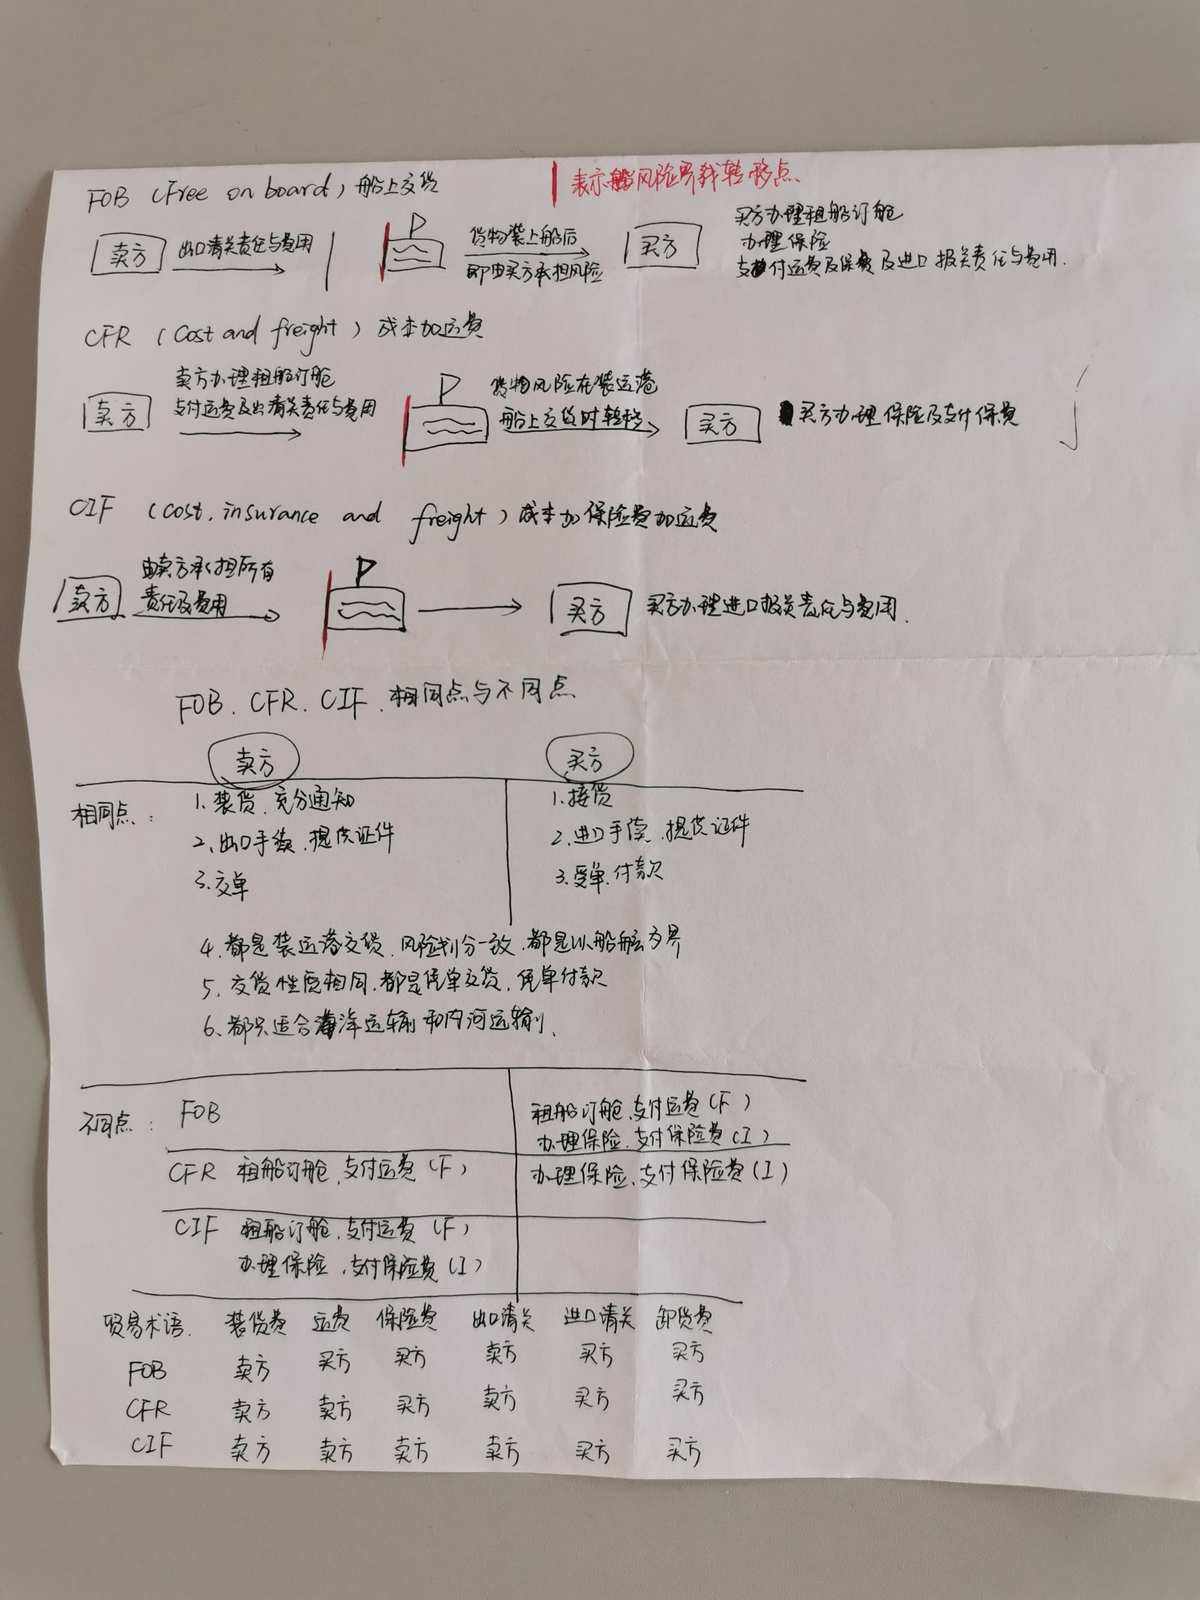 FOB (Free on board) 船上交货
表示船风险界线转移点
卖方 出口清关责任与费用
货物装上船后
即由买方承担风险
买方
买方办理租船订舱
办理保险
支付运费及保费及进口报关责任与费用.
CFR (Cost and freight) 成本加运费
卖方
卖方办理租船订舱
支付运费及出清关责任与费用
货物风险在装运港
船上交货时转移
买方
买方办理保险及支付保费
CIF (Cost, insurance and freight) 成本加保险费加运费
卖方
由卖方承担所有
责任及费用
买方 买方办理进口报关责任与费用.
FOB、CFR、CIF、相同点与不同点
卖方 买方
相同点: 1.装货、充分通知 1.接货
2、出口手续、提供证件 2、进口手续、提供证件
3.交单 3.受单、付款
4、都是装运港交货、风险划分一致、都是以船舷为界
5、交货性质相同、都是凭单交货、凭单付款
6、都只适合海洋运输和内河运输、
不同点: FOB 租船订舱、支付运费(F)
办理保险、支付保险费(I)
CFR 租船订舱、支付运费(F) 办理保险、支付保险费(I)
CIF 租船订舱、支付运费(F)
办理保险、支付保险费(I)
贸易术语. 装货费 运费 保险费 出口清关 进口清关 卸货费
FOB 卖方 买方 买方 卖方 买方 买方
CFR 卖方 卖方 买方 卖方 买方 买方
CIF 卖方 卖方 卖方 卖方 买方 买方